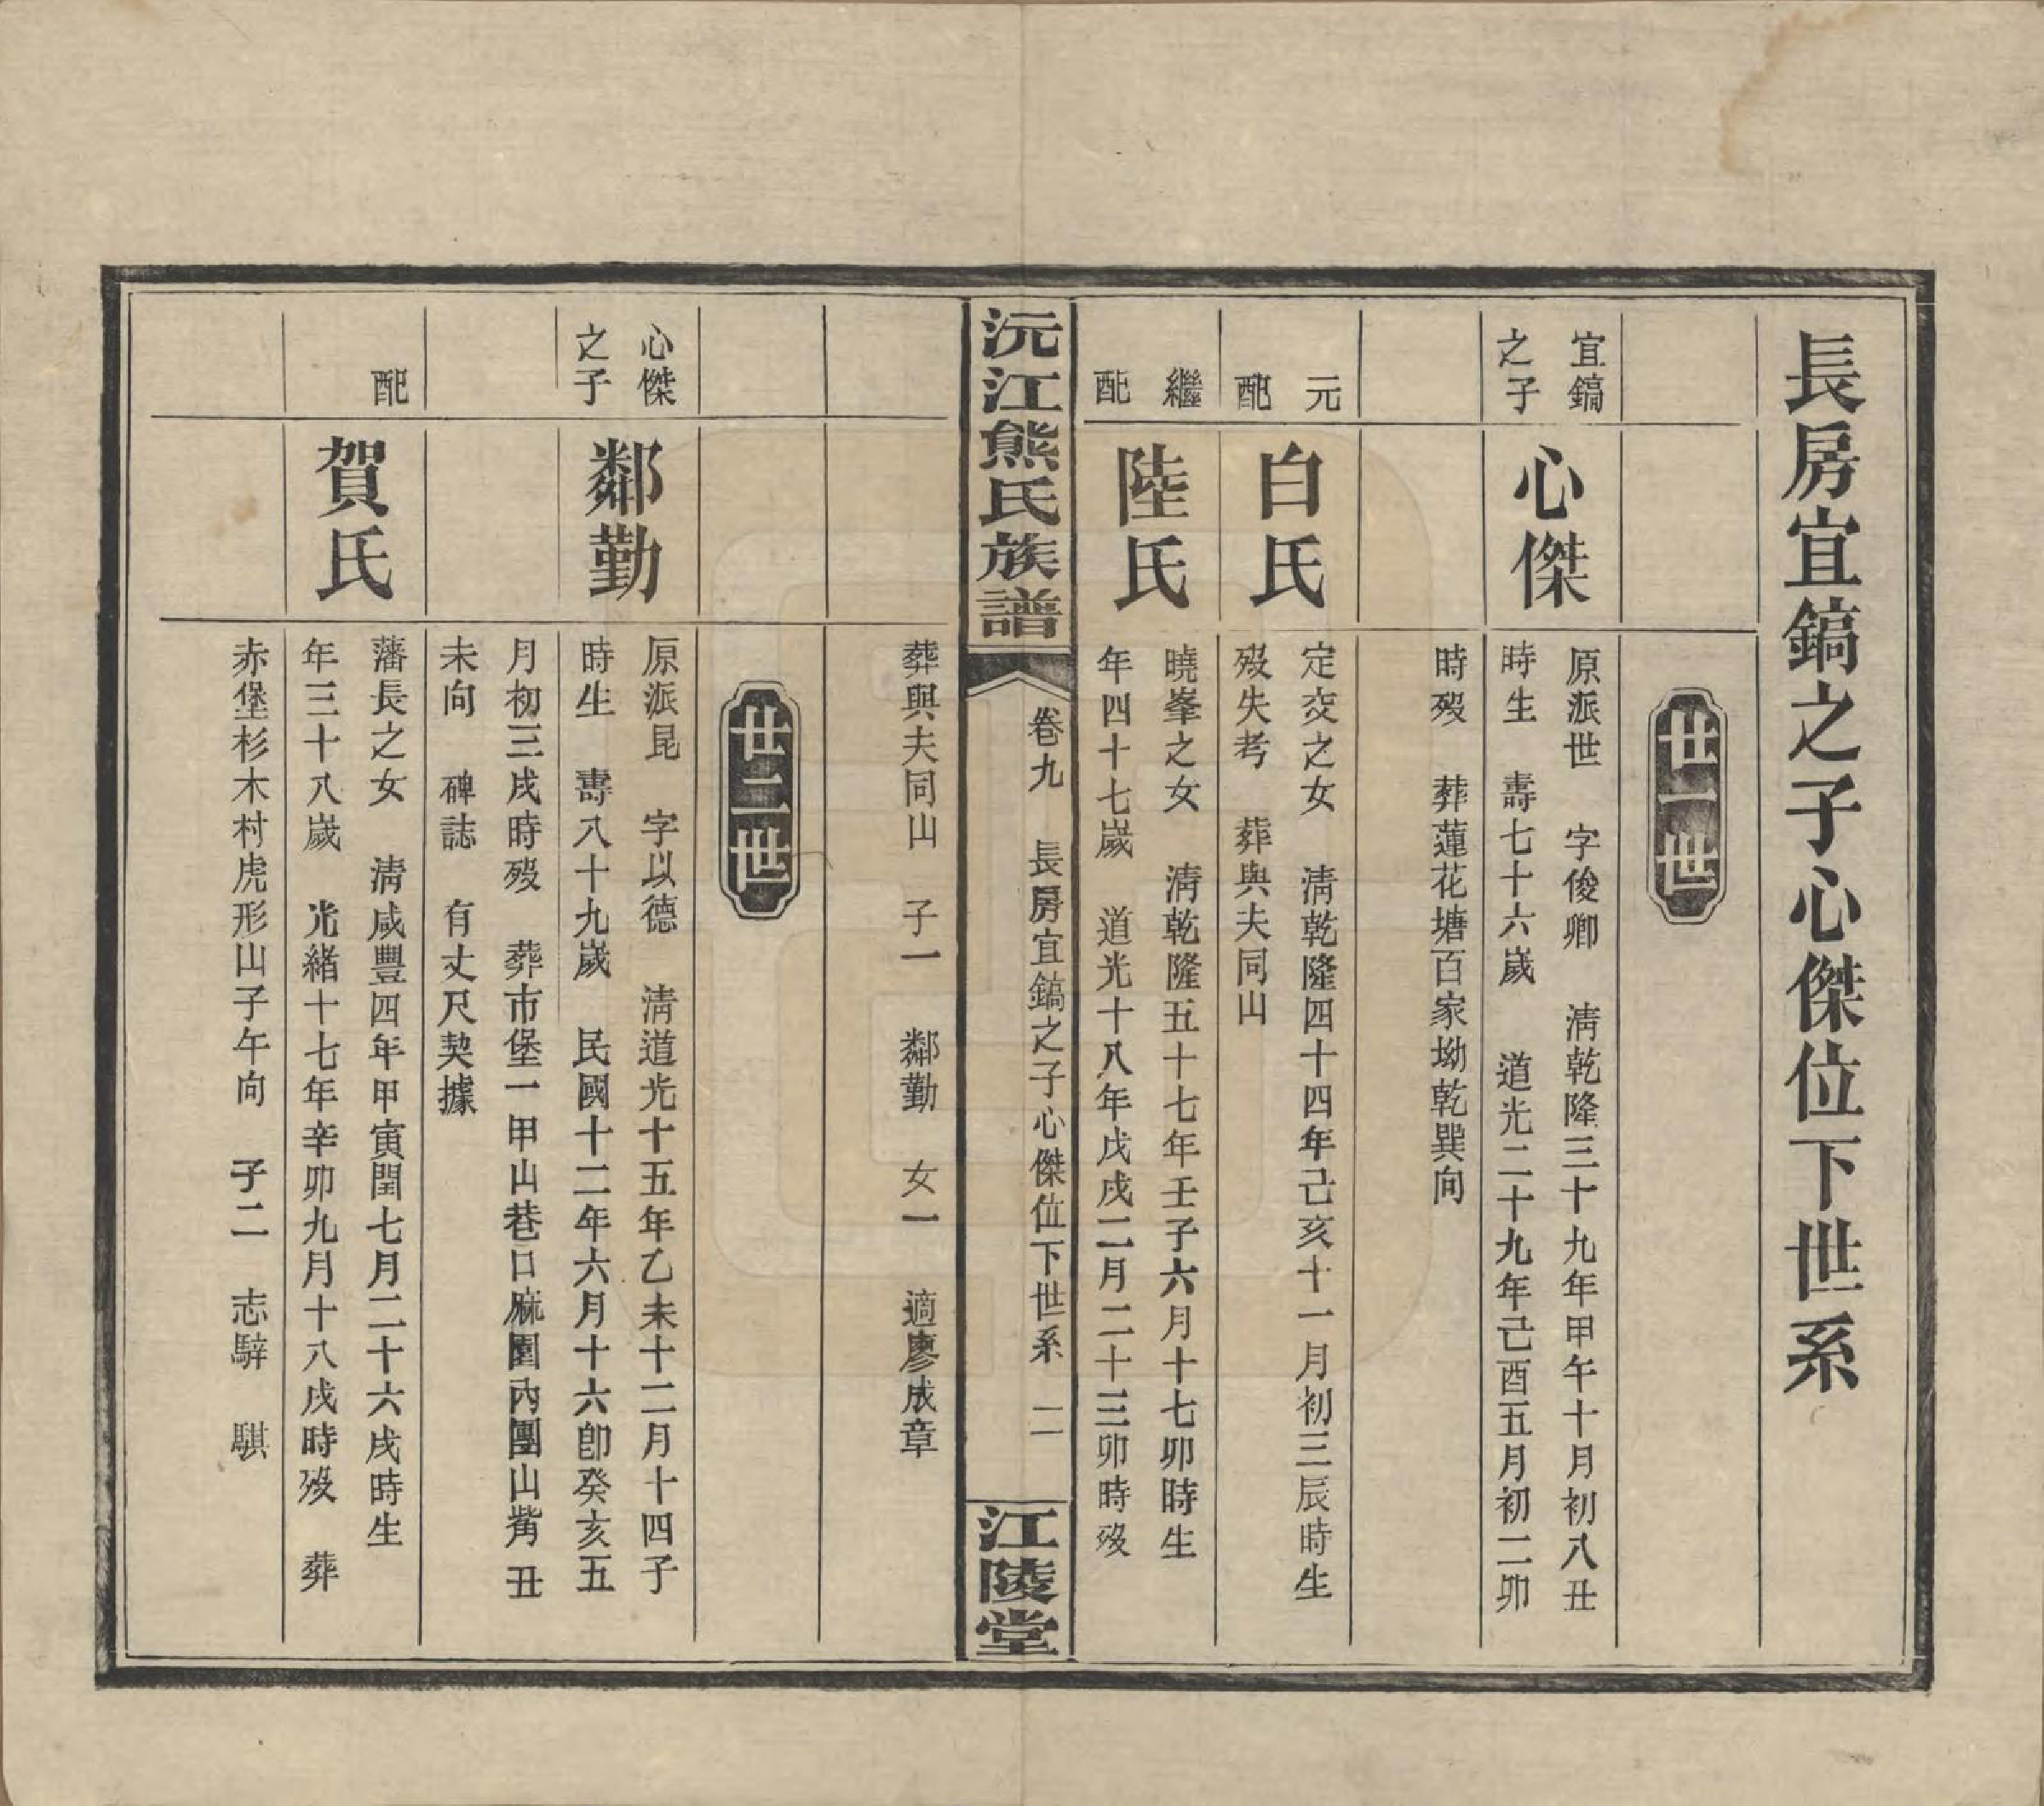 長房宜鎬之子心傑位下世系
廿一世
宜鎬
之子
心傑
原派世　字俊卿　淸乾隆三十九年甲午十月初八丑
時生　壽七十六歲　道光二十九年己酉五月初二卯
時歿　葬蓮花塘百家坳乾巽向
元
配
白氏
定交之女　淸乾隆四十四年己亥十一月初三辰時生
歿失考　葬與夫同山
繼
配
陸氏
曉峯之女　淸乾隆五十七年壬子六月十七卯時生
年四十七歲　道光十八年戊戌二月二十三卯時歿
沅江熊氏族譜
卷九　長房宜鎬之子心傑位下世系　二
江陵堂
葬與夫同山　子一　鄰勤　女一　適廖成章
廿二世
心傑
之子
鄰勤
原派昆　字以德　淸道光十五年乙未十二月十四子
時生　壽八十九歲　民國十二年六月十六卽癸亥五
月初三戌時歿　葬市堡一甲山巷口麻園內團山觜丑
未向　碑誌　有丈尺契據
配
賀氏
藩長之女　淸咸豐四年甲寅閏七月二十六戌時生
年三十八歲　光緒十七年辛卯九月十八戌時歿　葬
赤堡杉木村虎形山子午向　子二　志騂　騏